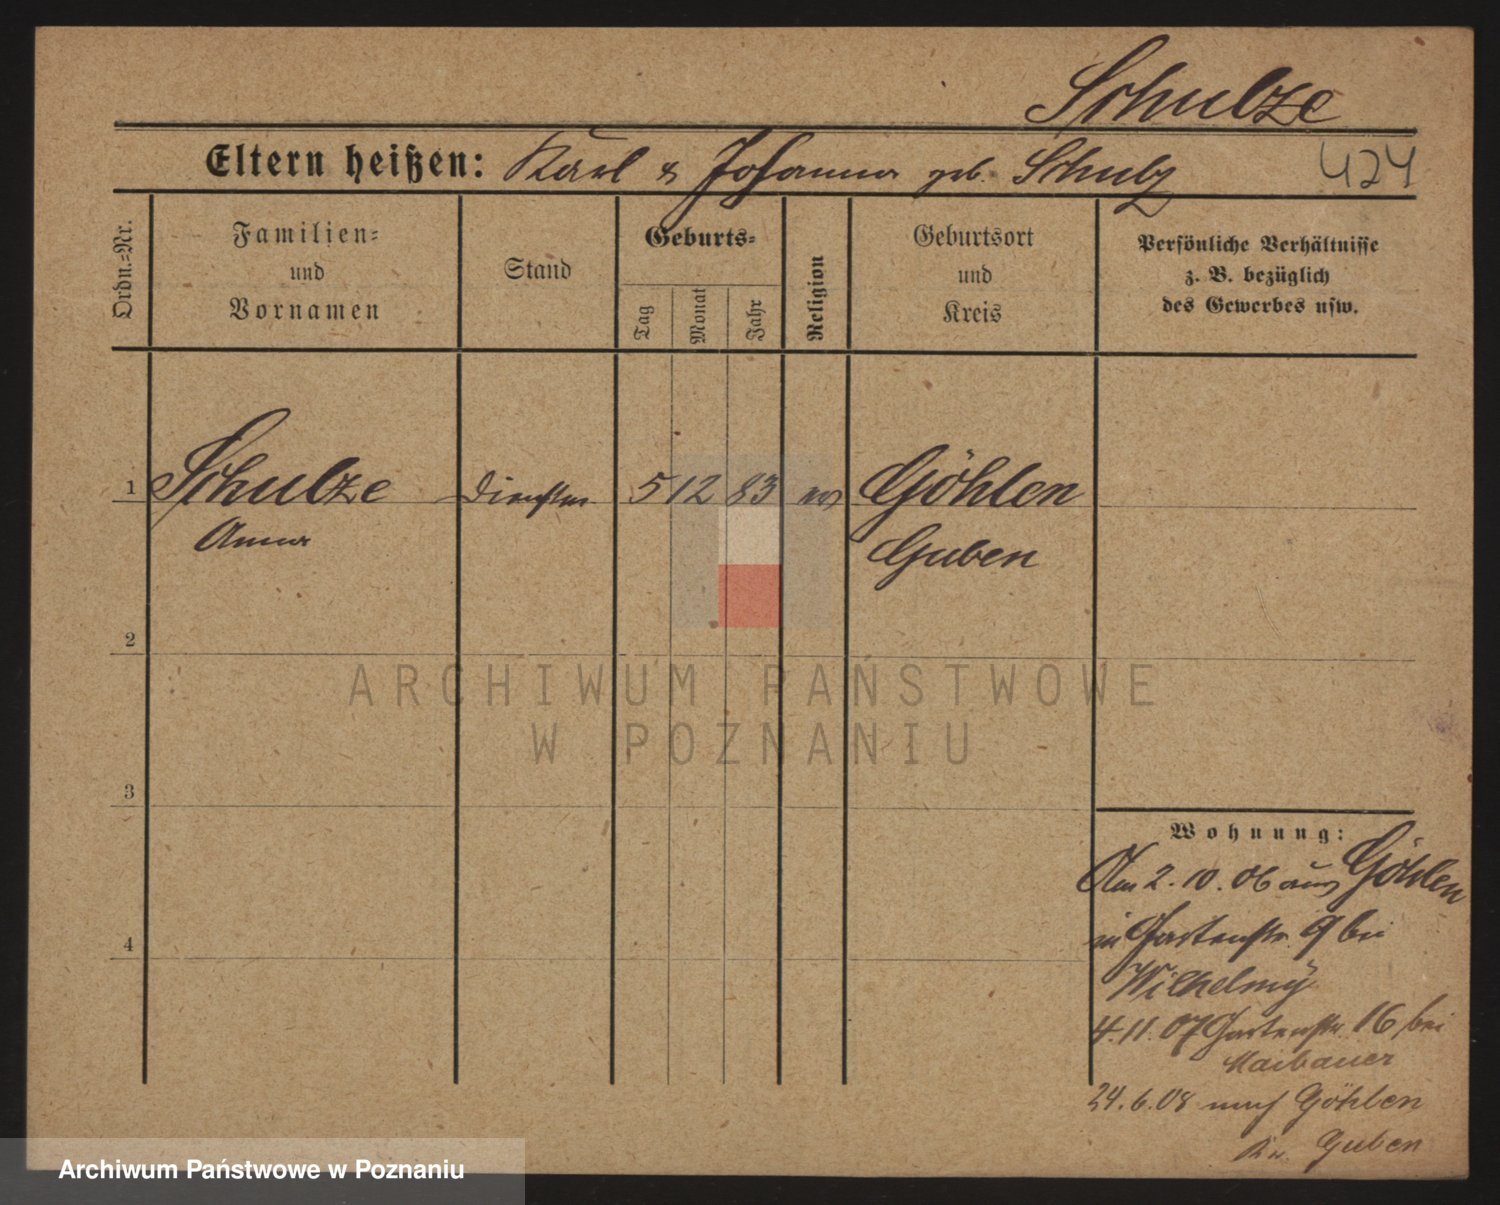 Schulze
Eltern heißen: Karl & Johanna geb. Schulz 424
Ordn.=Nr.
Familien=
und
Vornamen
Stand
Geburts=
Tag
Monat
Jahr
Religion
Geburtsort
und
Kreis
Persönliche Verhältnisse
z. B. bezüglich
des Gewerbes usw.
1 Schulze 5 12 83 ev Göhlen
Anna Guben
2
3
4
ARCHIWUM PAŃSTWOWE
W POZNANIU
Wohnung:
Am 2.10.06 aus Göhlen
in Gartenstr. 9 bei
Wilhelmy
4.11.07 Gartenstr. 16 bei
Maibauer
24.6.08 nach Göhlen
Kr. Guben
Archiwum Państwowe w Poznaniu